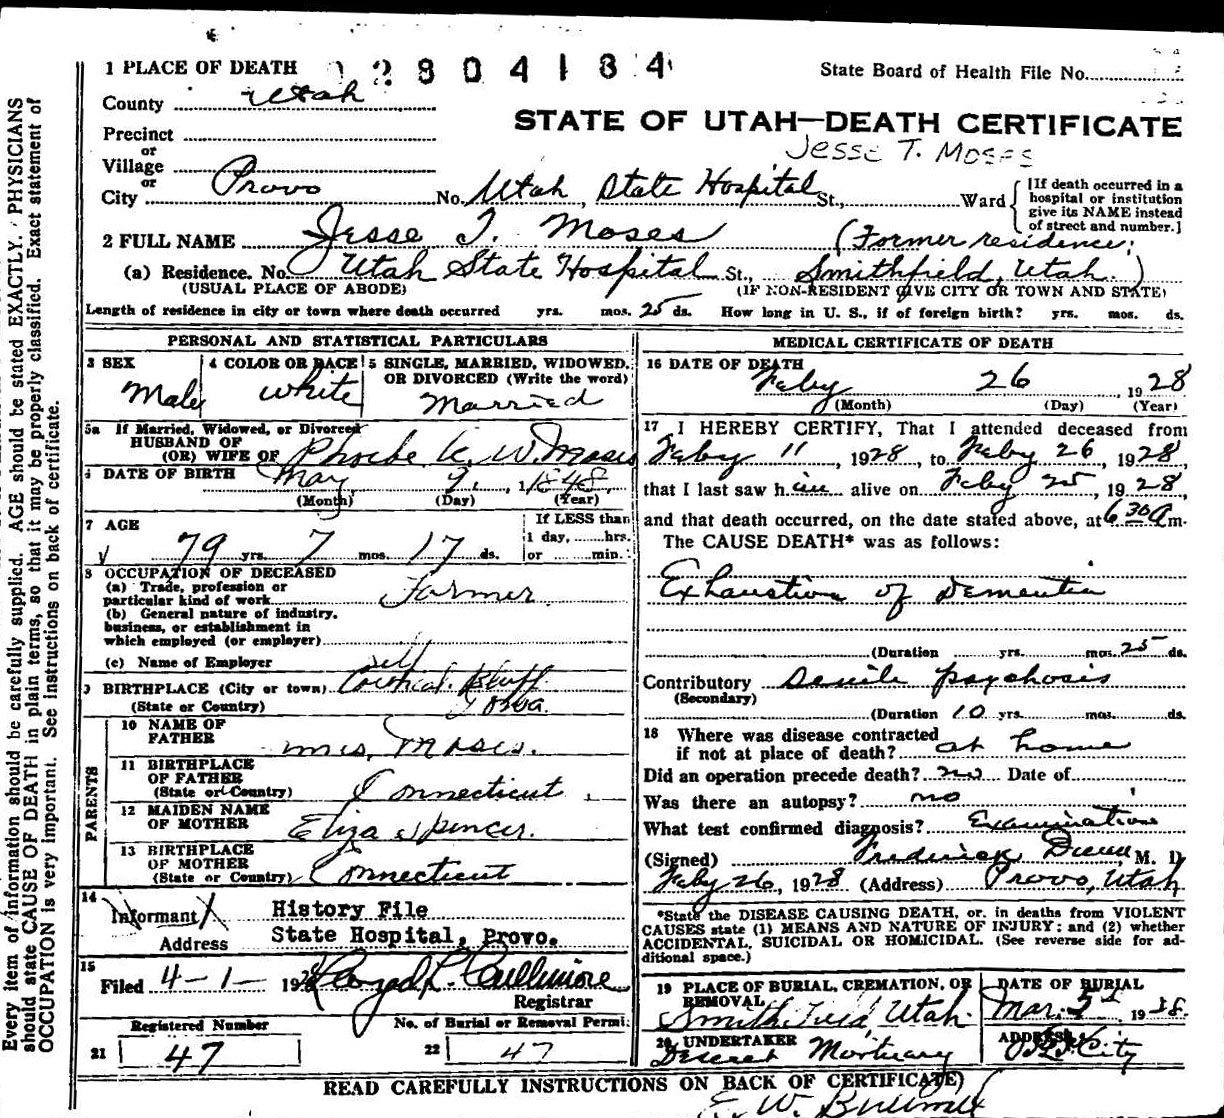 1 PLACE OF DEATH 2804184
State Board of Health File No.
County Utah
STATE OF UTAH—DEATH CERTIFICATE
Precinct
or
Jesse T. Moses
Village
or
City Provo No. Utah State Hospital St., Ward
[If death occurred in a
hospital or institution
give its NAME instead
of street and number.]
2 FULL NAME Jesse T. Moses (Former residence:
(a) Residence. No. Utah State Hospital St., Smithfield, Utah.)
(USUAL PLACE OF ABODE) (IF NON-RESIDENT GIVE CITY OR TOWN AND STATE)
Length of residence in city or town where death occurred yrs. mos. 25 ds. How long in U. S., if of foreign birth? yrs. mos. ds.
PERSONAL AND STATISTICAL PARTICULARS
3 SEX
Male
4 COLOR OR RACE
White
5 SINGLE, MARRIED, WIDOWED,
OR DIVORCED (Write the word)
Married
5a If Married, Widowed, or Divorced
HUSBAND OF
(OR) WIFE OF Phoebe W. Moses
6 DATE OF BIRTH May 9, 1848
(Month) (Day) (Year)
7 AGE
79 yrs. 7 mos. 17 ds.
If LESS than
1 day, hrs.
or min.
8 OCCUPATION OF DECEASED
(a) Trade, profession or
particular kind of work Farmer
(b) General nature of industry,
business, or establishment in
which employed (or employer)
(c) Name of Employer self
9 BIRTHPLACE (City or town) Council Bluff
(State or Country) Iowa.
PARENTS
10 NAME OF
FATHER Moses.
11 BIRTHPLACE
OF FATHER
(State or Country) Connecticut
12 MAIDEN NAME
OF MOTHER Eliza Spencer.
13 BIRTHPLACE
OF MOTHER
(State or Country) Connecticut
14
Informant History File
Address State Hospital, Provo.
15
Filed 4-1 1928
Registrar
Registered Number No. of Burial or Removal Permit
21 47 22 47
MEDICAL CERTIFICATE OF DEATH
16 DATE OF DEATH
Feby 26 1928
(Month) (Day) (Year)
17 I HEREBY CERTIFY, That I attended deceased from
Feby 11, 1928, to Feby 26, 1928,
that I last saw him alive on Feby 25, 1928,
and that death occurred, on the date stated above, at 6 30 a m.
The CAUSE DEATH* was as follows:
Exhaustion of Dementia
(Duration yrs. mos. 25 ds.
Contributory Senile psychosis
(Secondary)
(Duration 10 yrs. mos. ds.
18 Where was disease contracted
if not at place of death? at home
Did an operation precede death? no Date of
Was there an autopsy? no
What test confirmed diagnosis? Examination
(Signed) Frederick Dunn, M. D.
Feby 26, 1928 (Address) Provo, Utah
*State the DISEASE CAUSING DEATH, or, in deaths from VIOLENT
CAUSES state (1) MEANS AND NATURE OF INJURY; and (2) whether
ACCIDENTAL, SUICIDAL OR HOMICIDAL. (See reverse side for ad-
ditional space.)
19 PLACE OF BURIAL, CREMATION, OR
REMOVAL
Smithfield, Utah.
DATE OF BURIAL
Mar. 5 1928.
20 UNDERTAKER
Deseret Mortuary
ADDRESS
City
READ CAREFULLY INSTRUCTIONS ON BACK OF CERTIFICATE)
E. W.
Every item of information should be carefully supplied. AGE should be stated EXACTLY. PHYSICIANS
should state CAUSE OF DEATH in plain terms, so that it may be properly classified. Exact statement of
OCCUPATION is very important. See instructions on back of certificate.